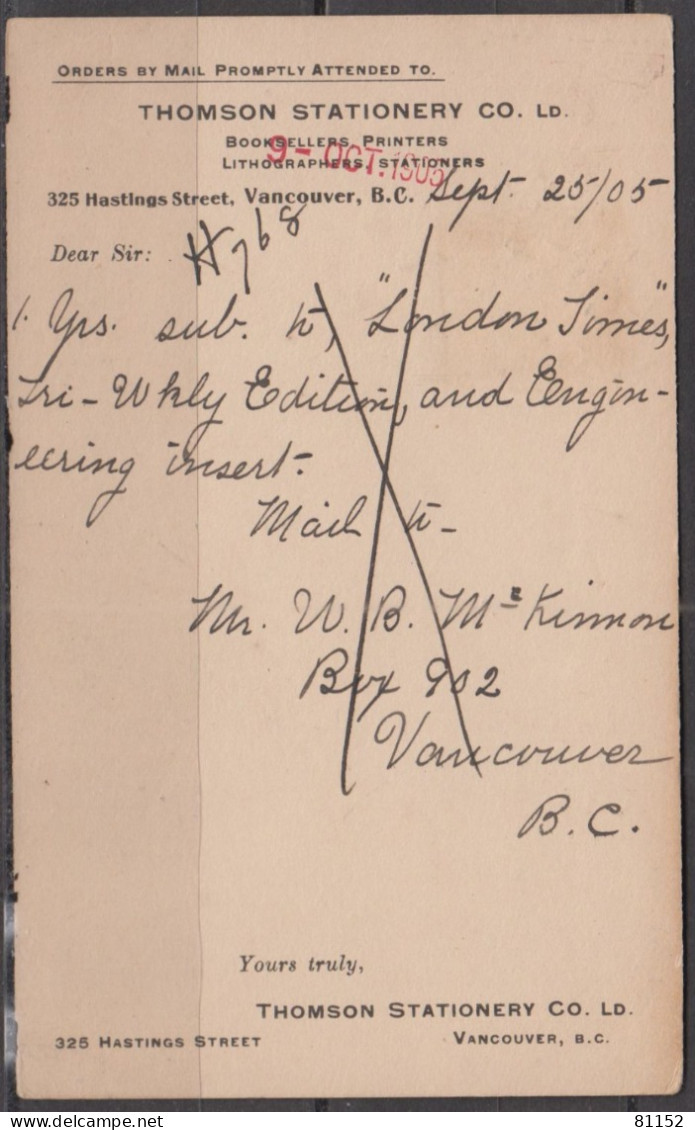 ORDERS BY MAIL PROMPTLY ATTENDED TO.
THOMSON STATIONERY CO. LD.
BOOKSELLERS, PRINTERS
LITHOGRAPHERS, STATIONERS
9 - OCT. 1905
325 Hastings Street, Vancouver, B.C. Sept. 25/05
Dear Sir: H768
1. Yrs. sub. to, "London Times",
Tri-Wkly Edition, and Engin-
eering insert.
Mail to -
Mr. W. B. McKinnon
Box 902
Vancouver
B. C.
Yours truly,
THOMSON STATIONERY CO. LD.
325 HASTINGS STREET VANCOUVER, B.C.
81152